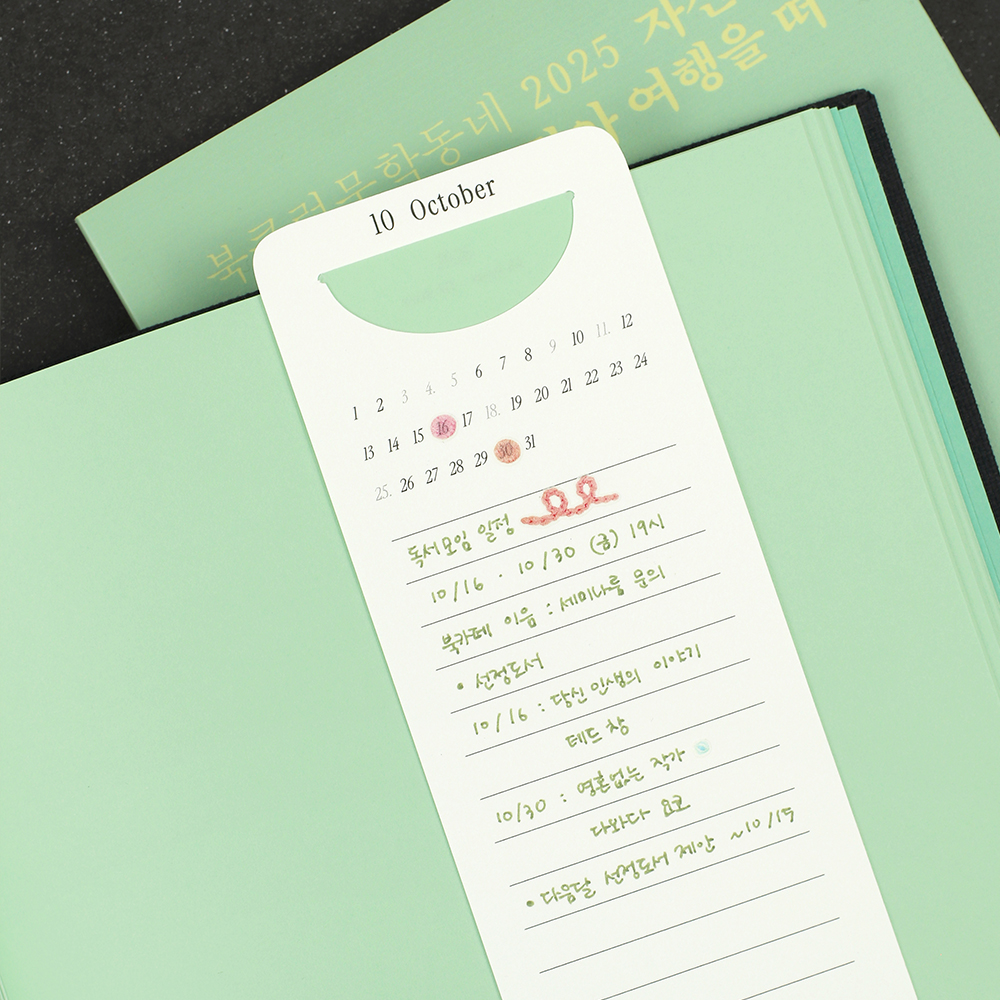 북클럽문학동네 2025 자신
여행을 떠
10 October
1 2 3 4. 5 6 7 8 9 10 11. 12
13 14 15 16 17 18. 19 20 21 22 23 24
25. 26 27 28 29 30 31
독서모임 일정
10/16 · 10/30 (금) 19시
북카페 이음 : 세미나룸 문의
• 선정도서
10/16 : 당신 인생의 이야기
테드 창
10/30 : 영혼없는 작가
다와다 요코
• 다음달 선정도서 제안 ~10/15